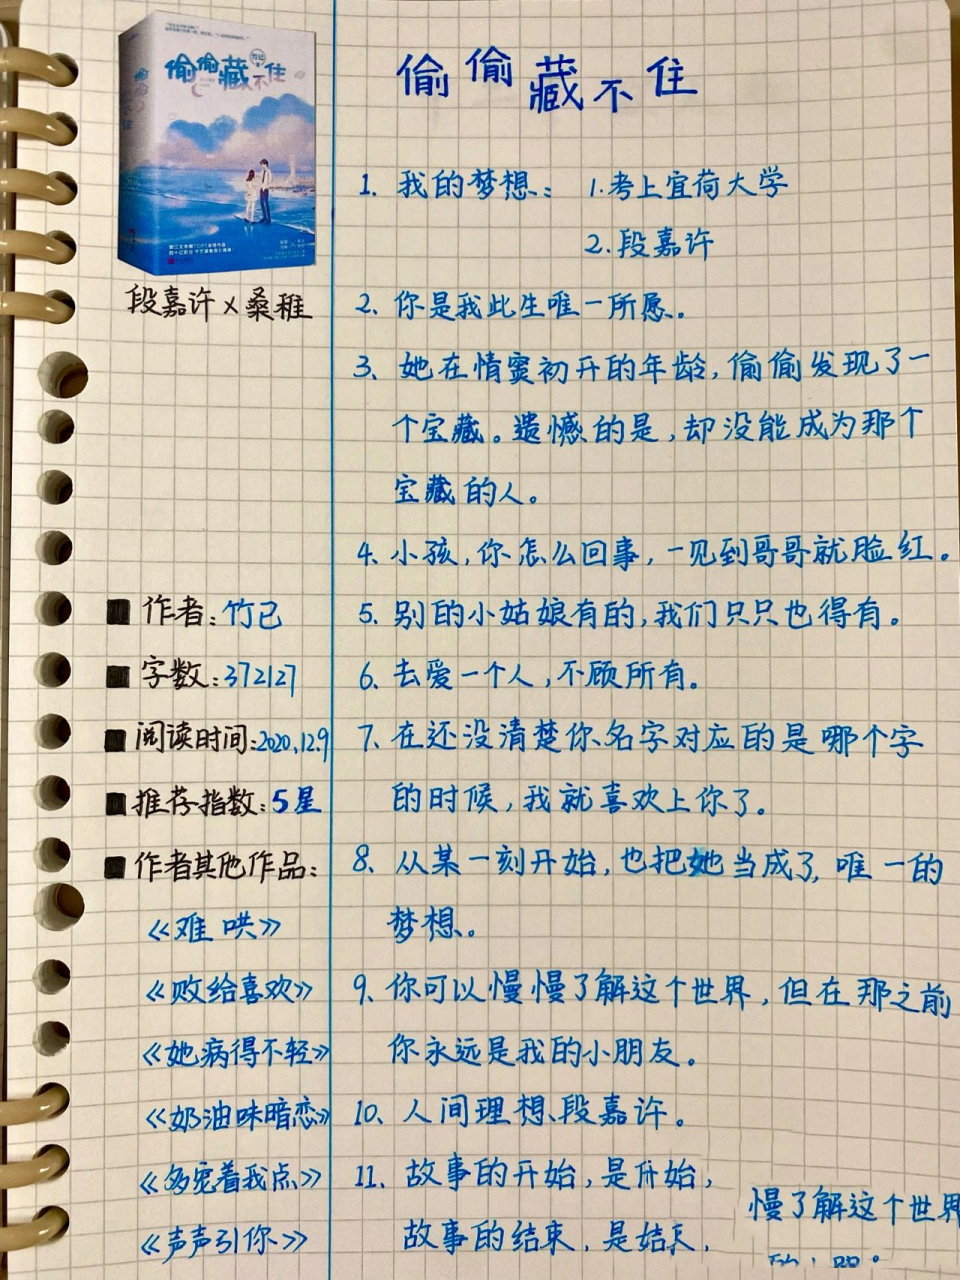 偷偷藏不住
偷偷藏不住
段嘉许×桑稚
作者:竹已
字数:372127
阅读时间:2020.12.9
推荐指数:5星
作者其他作品:
《难哄》
《败给喜欢》
《她病得不轻》
《奶油味暗恋》
《多宠着我点》
《声声引你》
偷偷藏不住
1、我的梦想: 1.考上宜荷大学
2.段嘉许
2、你是我此生唯一所愿。
3、她在情窦初开的年龄,偷偷发现了一
个宝藏。遗憾的是,却没能成为那个
宝藏的人。
4、小孩,你怎么回事,一见到哥哥就脸红。
5、别的小姑娘有的,我们只只也得有。
6、去爱一个人,不顾所有。
7、在还没清楚你名字对应的是哪个字
的时候,我就喜欢上你了。
8、从某一刻开始,也把她当成了,唯一的
梦想。
9、你可以慢慢了解这个世界,但在那之前
你永远是我的小朋友。
10、人间理想、段嘉许。
11、故事的开始,是开始,
故事的结束,是结束,
慢了解这个世界